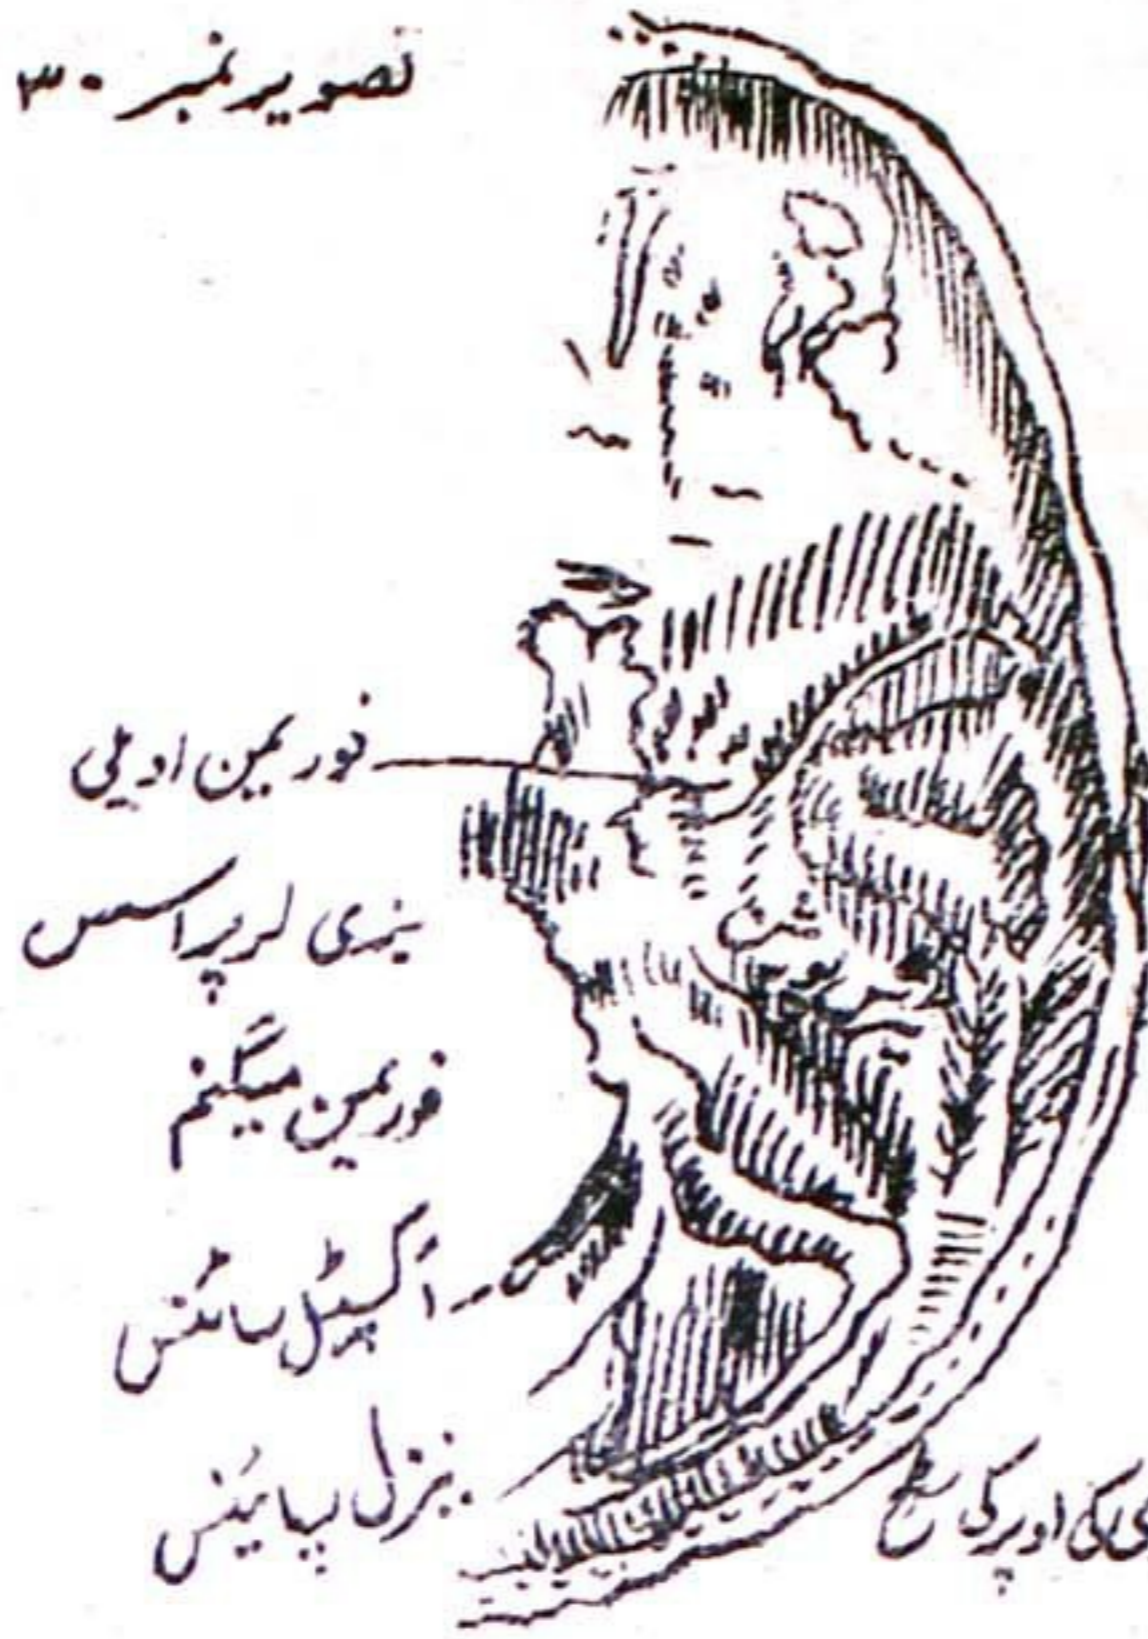 تصویر نمبر ۳۰
فوریمین اویلی
بیزی لر پراسس
فوریمین میگنم
آکسیپٹل سائنس
بیزل سپائینس
کی اوپر کی سطح